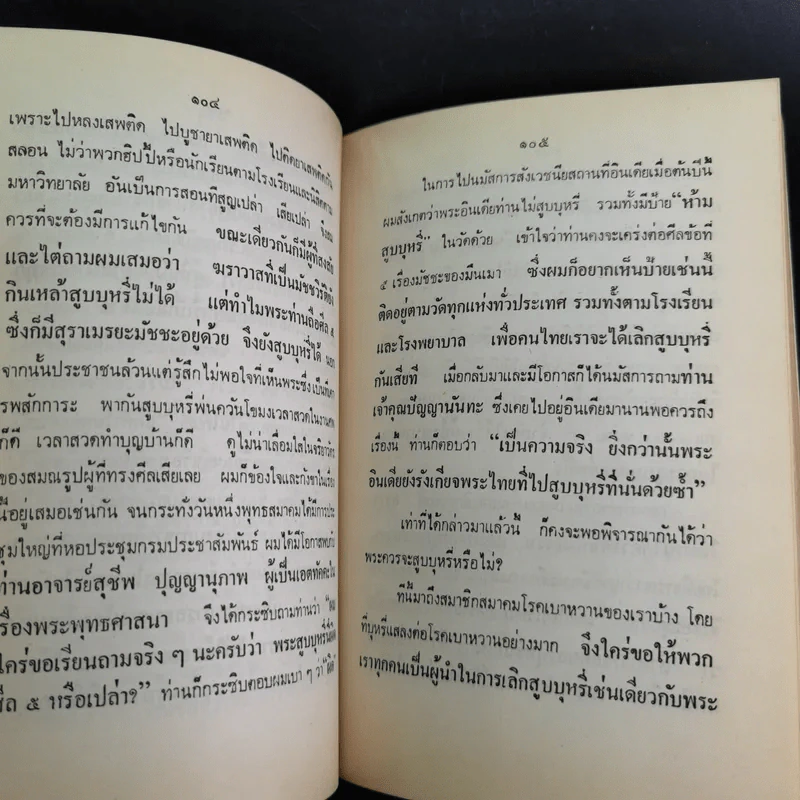 ๑๐๔
เพราะไปหลงเสพติด ไปบูชายาเสพติด ไปติดยาเสพติดกัน
สลอน ไม่ว่าพวกฮิปปี้หรือนักเรียนตามโรงเรียนและนิสิตตาม
มหาวิทยาลัย อันเป็นการสอนที่สูญเปล่า เสียเปล่า
ควรที่จะต้องมีการแก้ไขกัน ขณะเดียวกันก็มีผู้ที่สงสัย
และไต่ถามผมเสมอว่า ฆราวาสที่เป็นมัชชวิรัติยัง
กินเหล้าสูบบุหรี่ไม่ได้ แต่ทำไมพระท่านถือศีล ๕
ซึ่งก็มีสุราเมรยะมัชชะอยู่ด้วย จึงยังสูบบุหรี่ได้
จากนั้นประชาชนล้วนแต่รู้สึกไม่พอใจที่เห็นพระซึ่งเป็นที่
รพสักการะ พากันสูบบุหรี่พ่นควันโขมงเวลาสวดในงาน
ก็ดี เวลาสวดทำบุญบ้านก็ดี ดูไม่น่าเลื่อมใสในจริยาวัตร
ของสมณรูปผู้ที่ทรงศีลเสียเลย ผมก็ข้องใจและกังขาในเรื่อง
นี้อยู่เสมอเช่นกัน จนกระทั่งวันหนึ่งพุทธสมาคมได้มีการประ
ชุมใหญ่ที่หอประชุมกรมประชาสัมพันธ์ ผมได้มีโอกาสพบกับ
ท่านอาจารย์สุชีพ ปุญญานุภาพ ผู้เป็นเอตทัคคะใน
รื่องพระพุทธศาสนา จึงได้กระซิบถามท่านว่า "ผม
ใคร่ขอเรียนถามจริง ๆ นะครับว่า พระสูบบุหรี่นี่ผิด
ศีล ๕ หรือเปล่า?" ท่านก็กระซิบตอบผมเบา ๆ ว่า "ผิด"
๑๐๕
ในการไปนมัสการสังเวชนียสถานที่อินเดียเมื่อต้นปีนี้
ผมสังเกตว่าพระอินเดียท่านไม่สูบบุหรี่ รวมทั้งมีป้าย "ห้าม
สูบบุหรี่" ในวัดด้วย เข้าใจว่าท่านคงจะเคร่งต่อศีลข้อที่
๕ เรื่องมัชชะของมึนเมา ซึ่งผมก็อยากเห็นป้ายเช่นนี้
ติดอยู่ตามวัดทุกแห่งทั่วประเทศ รวมทั้งตามโรงเรียน
และโรงพยาบาล เพื่อคนไทยเราจะได้เลิกสูบบุหรี่
กันเสียที เมื่อกลับมาและมีโอกาสก็ได้นมัสการถามท่าน
เจ้าคุณปัญญานันทะ ซึ่งเคยไปอยู่อินเดียมานานพอควรถึง
เรื่องนี้ ท่านก็ตอบว่า "เป็นความจริง ยิ่งกว่านั้นพระ
อินเดียยังรังเกียจพระไทยที่ไปสูบบุหรี่ที่นั่นด้วยซ้ำ"
เท่าที่ได้กล่าวมาแล้วนี้ ก็คงจะพอพิจารณากันได้ว่า
พระควรจะสูบบุหรี่หรือไม่?
ทีนี้มาถึงสมาชิกสมาคมโรคเบาหวานของเราบ้าง โดย
ที่บุหรี่แสลงต่อโรคเบาหวานอย่างมาก จึงใคร่ขอให้พวก
เราทุกคนเป็นผู้นำในการเลิกสูบบุหรี่เช่นเดียวกับพระ